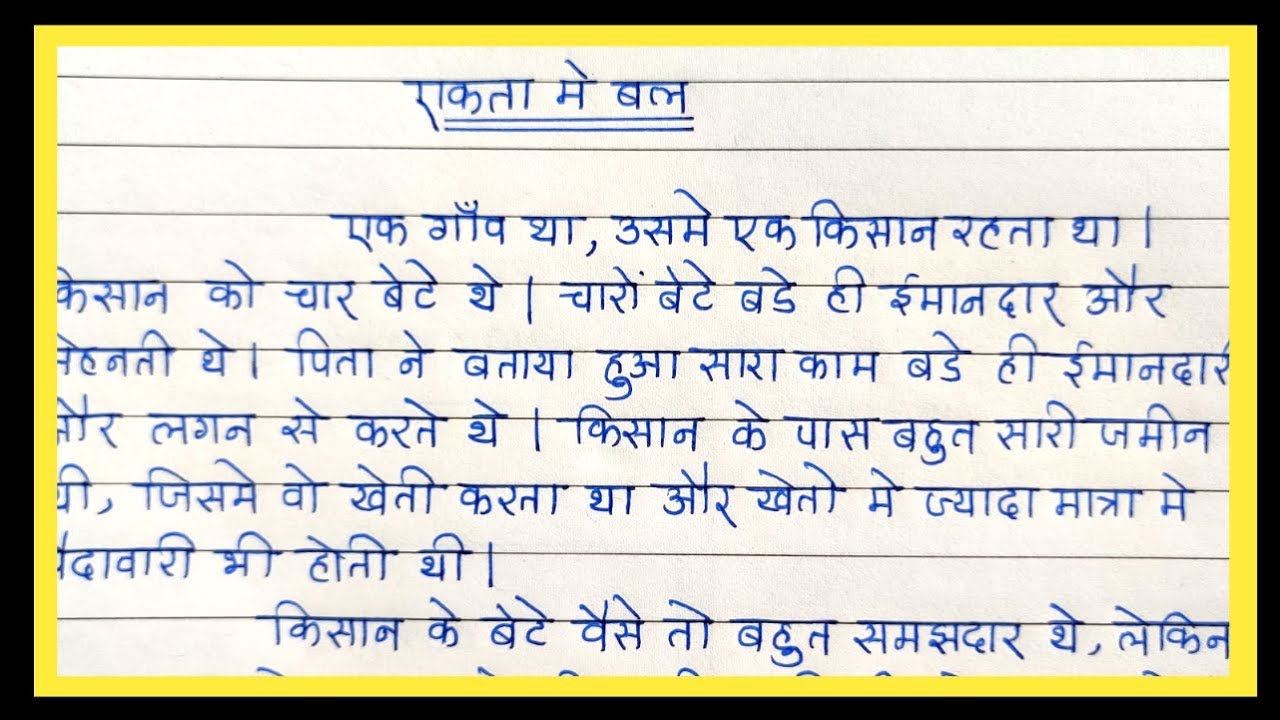 एकता मे बल
एक गाँव था, उसमे एक किसान रहता था।
केसान को चार बेटे थे। चारों बेटे बडे ही ईमानदार और
मेहनती थे। पिता ने बताया हुआ सारा काम बडे ही ईमानदारी
और लगन से करते थे। किसान के पास बहुत सारी जमीन
थी, जिसमे वो खेती करता था और खेतो मे ज्यादा मात्रा मे
पैदावारी भी होती थी।
किसान के बेटे वैसे तो बहुत समझदार थे, लेकिन